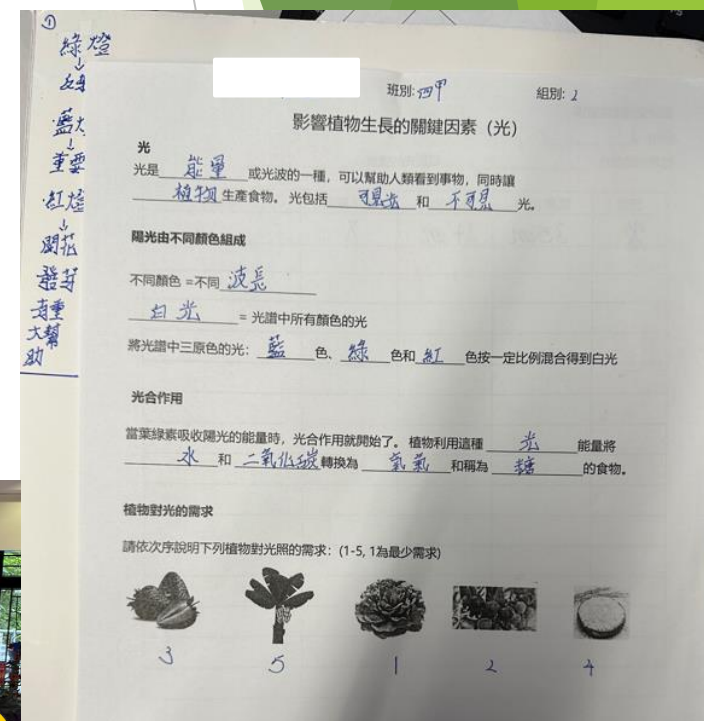 ①
綠燈
↓
藍
重要
紅燈
↓
開花
發芽
有重
大幫
助
班別: 四甲 組別: 2
影響植物生長的關鍵因素（光）
光
光是 能量 或光波的一種，可以幫助人類看到事物，同時讓
植物 生產食物。 光包括 可見光 和 不可見 光。
陽光由不同顏色組成
不同顏色 =不同 波長
白光 = 光譜中所有顏色的光
將光譜中三原色的光： 藍 色、 綠 色和 紅 色按一定比例混合得到白光
光合作用
當葉綠素吸收陽光的能量時，光合作用就開始了。 植物利用這種 光 能量將
水 和 二氧化碳 轉換為 氧氣 和稱為 糖 的食物。
植物對光的需求
請依次序說明下列植物對光照的需求：(1-5, 1為最少需求)
3 5 1 2 4